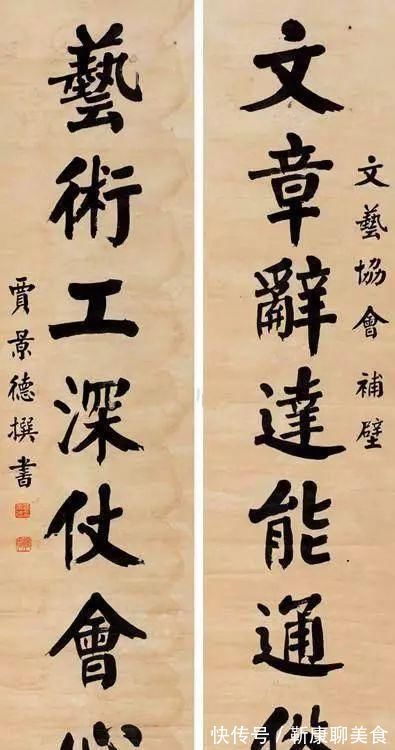 文藝協會 補壁
文章辭達能通
藝術工深仗會
賈景德撰書
快传号 / 靳康聊美食